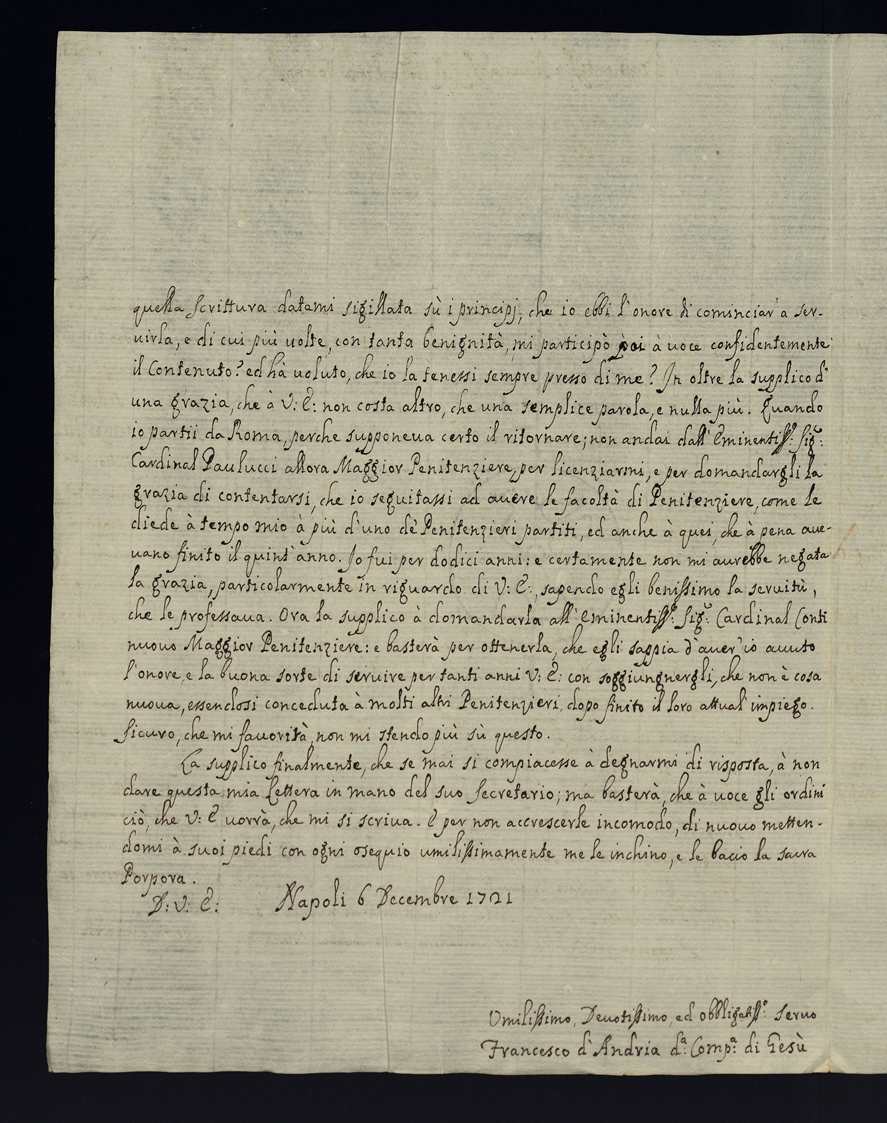 quella scrittura datami sigillata sù i principj, che io ebbi l'onore di cominciar' a ser-
uirla, e di cui più uolte, con tanta benignità, mi participò poi à uoce confidentemente
il Contenuto? ed hà uoluto, che io la tenessi sempre presso di me? In oltre la supplico d'
una grazia, che à V: E: non costa altro, che una semplice parola, e nulla più. Quando
io partii da Roma, perche supponeua certo il ritornare; non andai dall'Eminentiss.º Sig.
Cardinal Paulucci allora Maggior Penitenziere, per licenziarmi, e per domandargli la
grazia di contentarsi, che io seguitassi ad auere le facoltà di Penitenziere, come le
diede à tempo mio à più d'uno de' Penitenzieri partiti, ed anche à quei, che à pena aue-
uano finito il quint'anno. Io fui per dodici anni: e certamente non mi aurebbe negata
la grazia, particolarmente in riguardo di V: E:, sapendo egli benissimo la seruitù,
che le professaua. Ora la supplico à domandarla all'Eminentiss.º Sig. Cardinal Conti
nuouo Maggior Penitenziere: e basterà per ottenerla, che egli sappia d'auer'io auuto
l'onore, e la buona sorte di seruire per tanti anni V: E: con soggiungnergli, che non è cosa
nuoua, essendosi conceduta à molti altri Penitenzieri, dopo finito il loro attual'impiego.
Sicuro, che mi fauorità, non mi stendo più sù questo.
La supplico finalmente, che se mai si compiacesse à degnarmi di risposta, à non
dare questa mia Lettera in mano del suo Secretario; ma basterà, che à uoce gli ordini
ciò, che V: E uorrà, che mi si scriua. E per non accrescerle incomodo, di nuouo metten-
domi à suoi piedi con ogni osequio umilissimamente me le inchino, e le bacio la sacra
Porpora.
D: V: E: Napoli 6 Decembre 1721
Umilissimo, Deuotissimo, ed obbligatiss.º seruo
Francesco d'Andria d.ª Comp.ª di Gesù